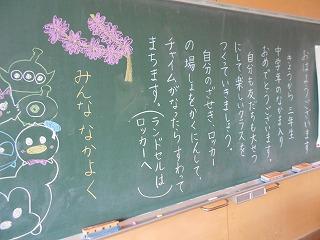 おはようございます
きょうから三年生
中学年のなかま入り
おめでとうございます。
自分も友だちも大せつ
にして楽しいクラスを
つくっていきましょう。
自分のざせき、ロッカー
の場しょをかくにんして、
チャイムがなったらすわって
まちます。(ランドセルは
ロッカーへ)
みんな なかよく